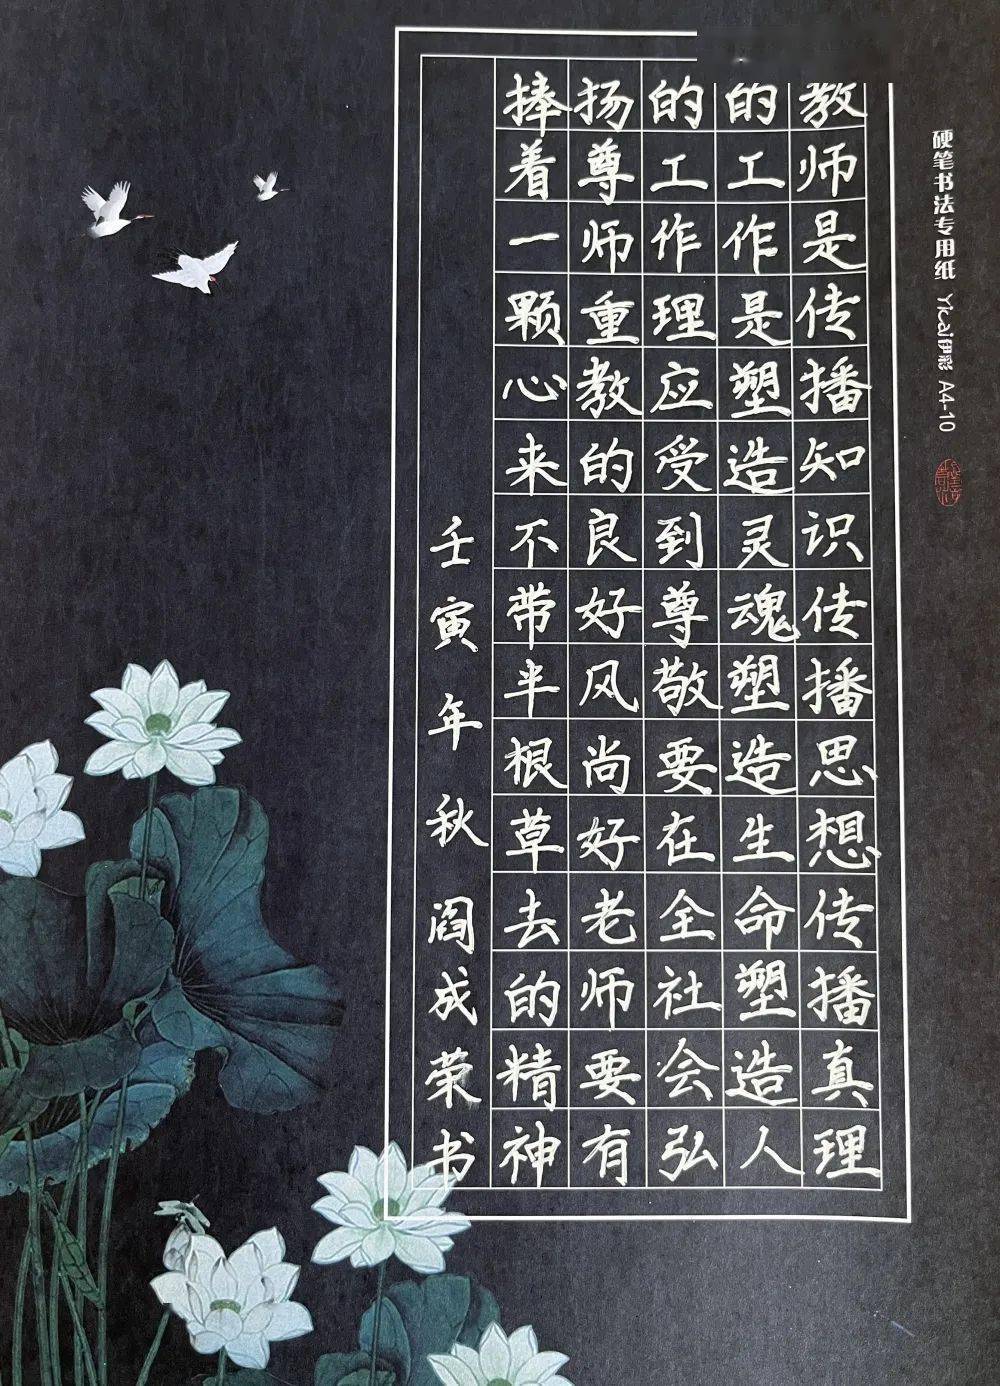 教师是传播知识传播思想传播真理
的工作是塑造灵魂塑造生命塑造人
的工作理应受到尊敬要在全社会弘
扬尊师重教的良好风尚好老师要有
捧着一颗心来不带半根草去的精神
壬寅年秋阎成荣书
硬笔书法专用纸 Yicai伊彩 A4-10